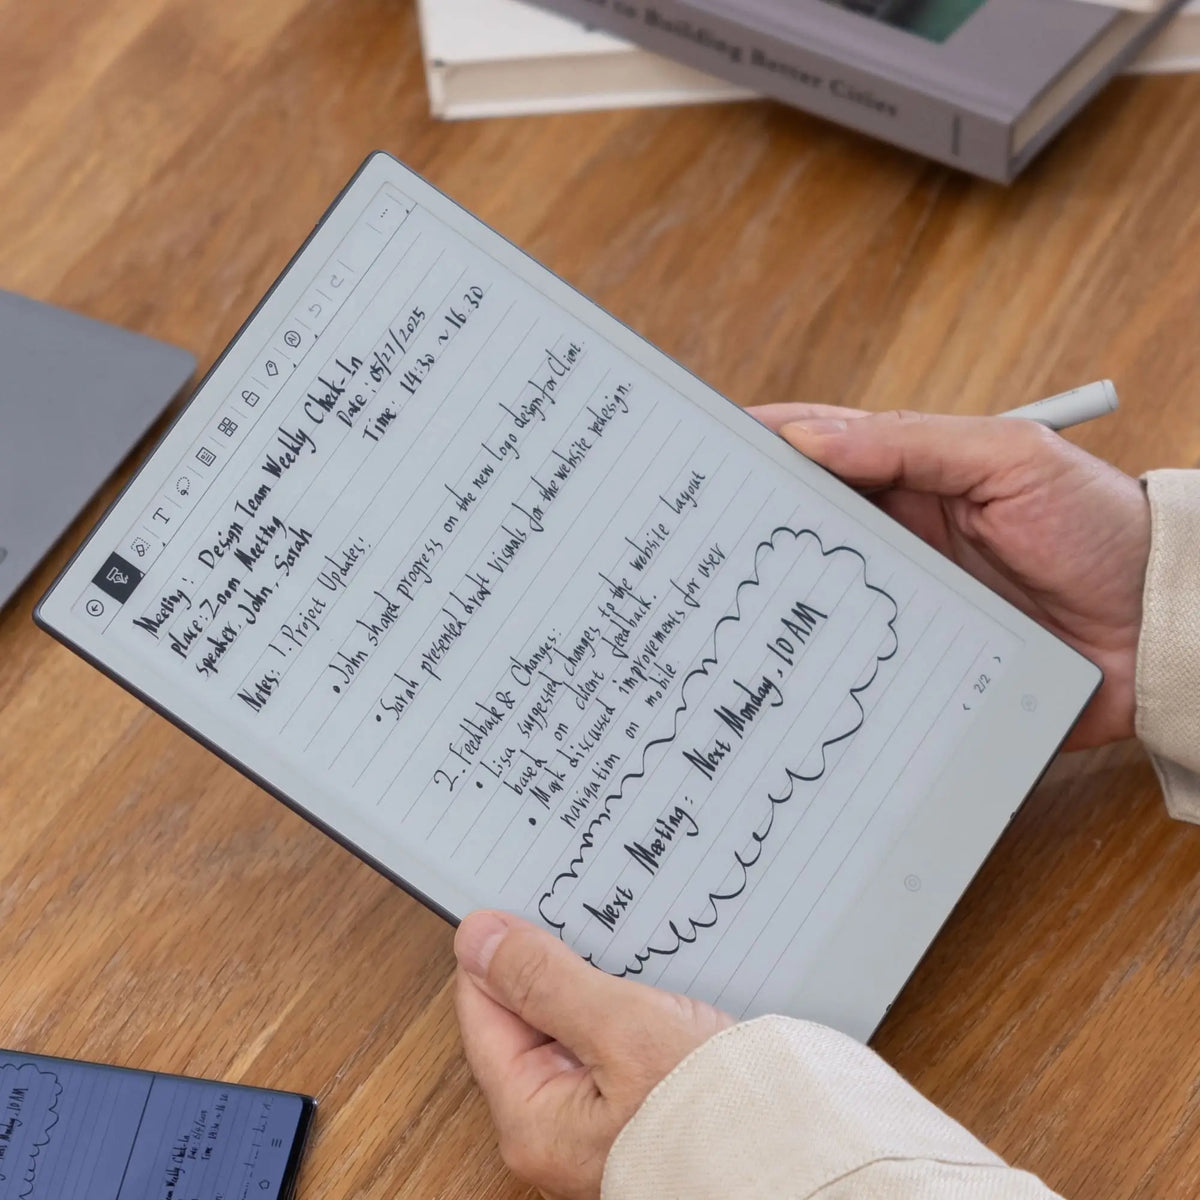 to Building Better Cities
T
AI
Meeting: Design Team Weekly Check-In
Date: 05/27/2025
Place: Zoom Meeting
Time: 14:30 ~ 16:30
speaker: John, Sarah
Notes: 1. Project Updates:
• John shared progress on the new logo design for Client.
• Sarah presented draft visuals for the website redesign.
2. Feedback & Changes:
• Lisa suggested changes to the website layout
based on client feedback.
• Mark discussed improvements for user
navigation on mobile
Next Meeting: Next Monday, 10AM
2/2
Monday, 10AM
Weekly Check-In
Time: